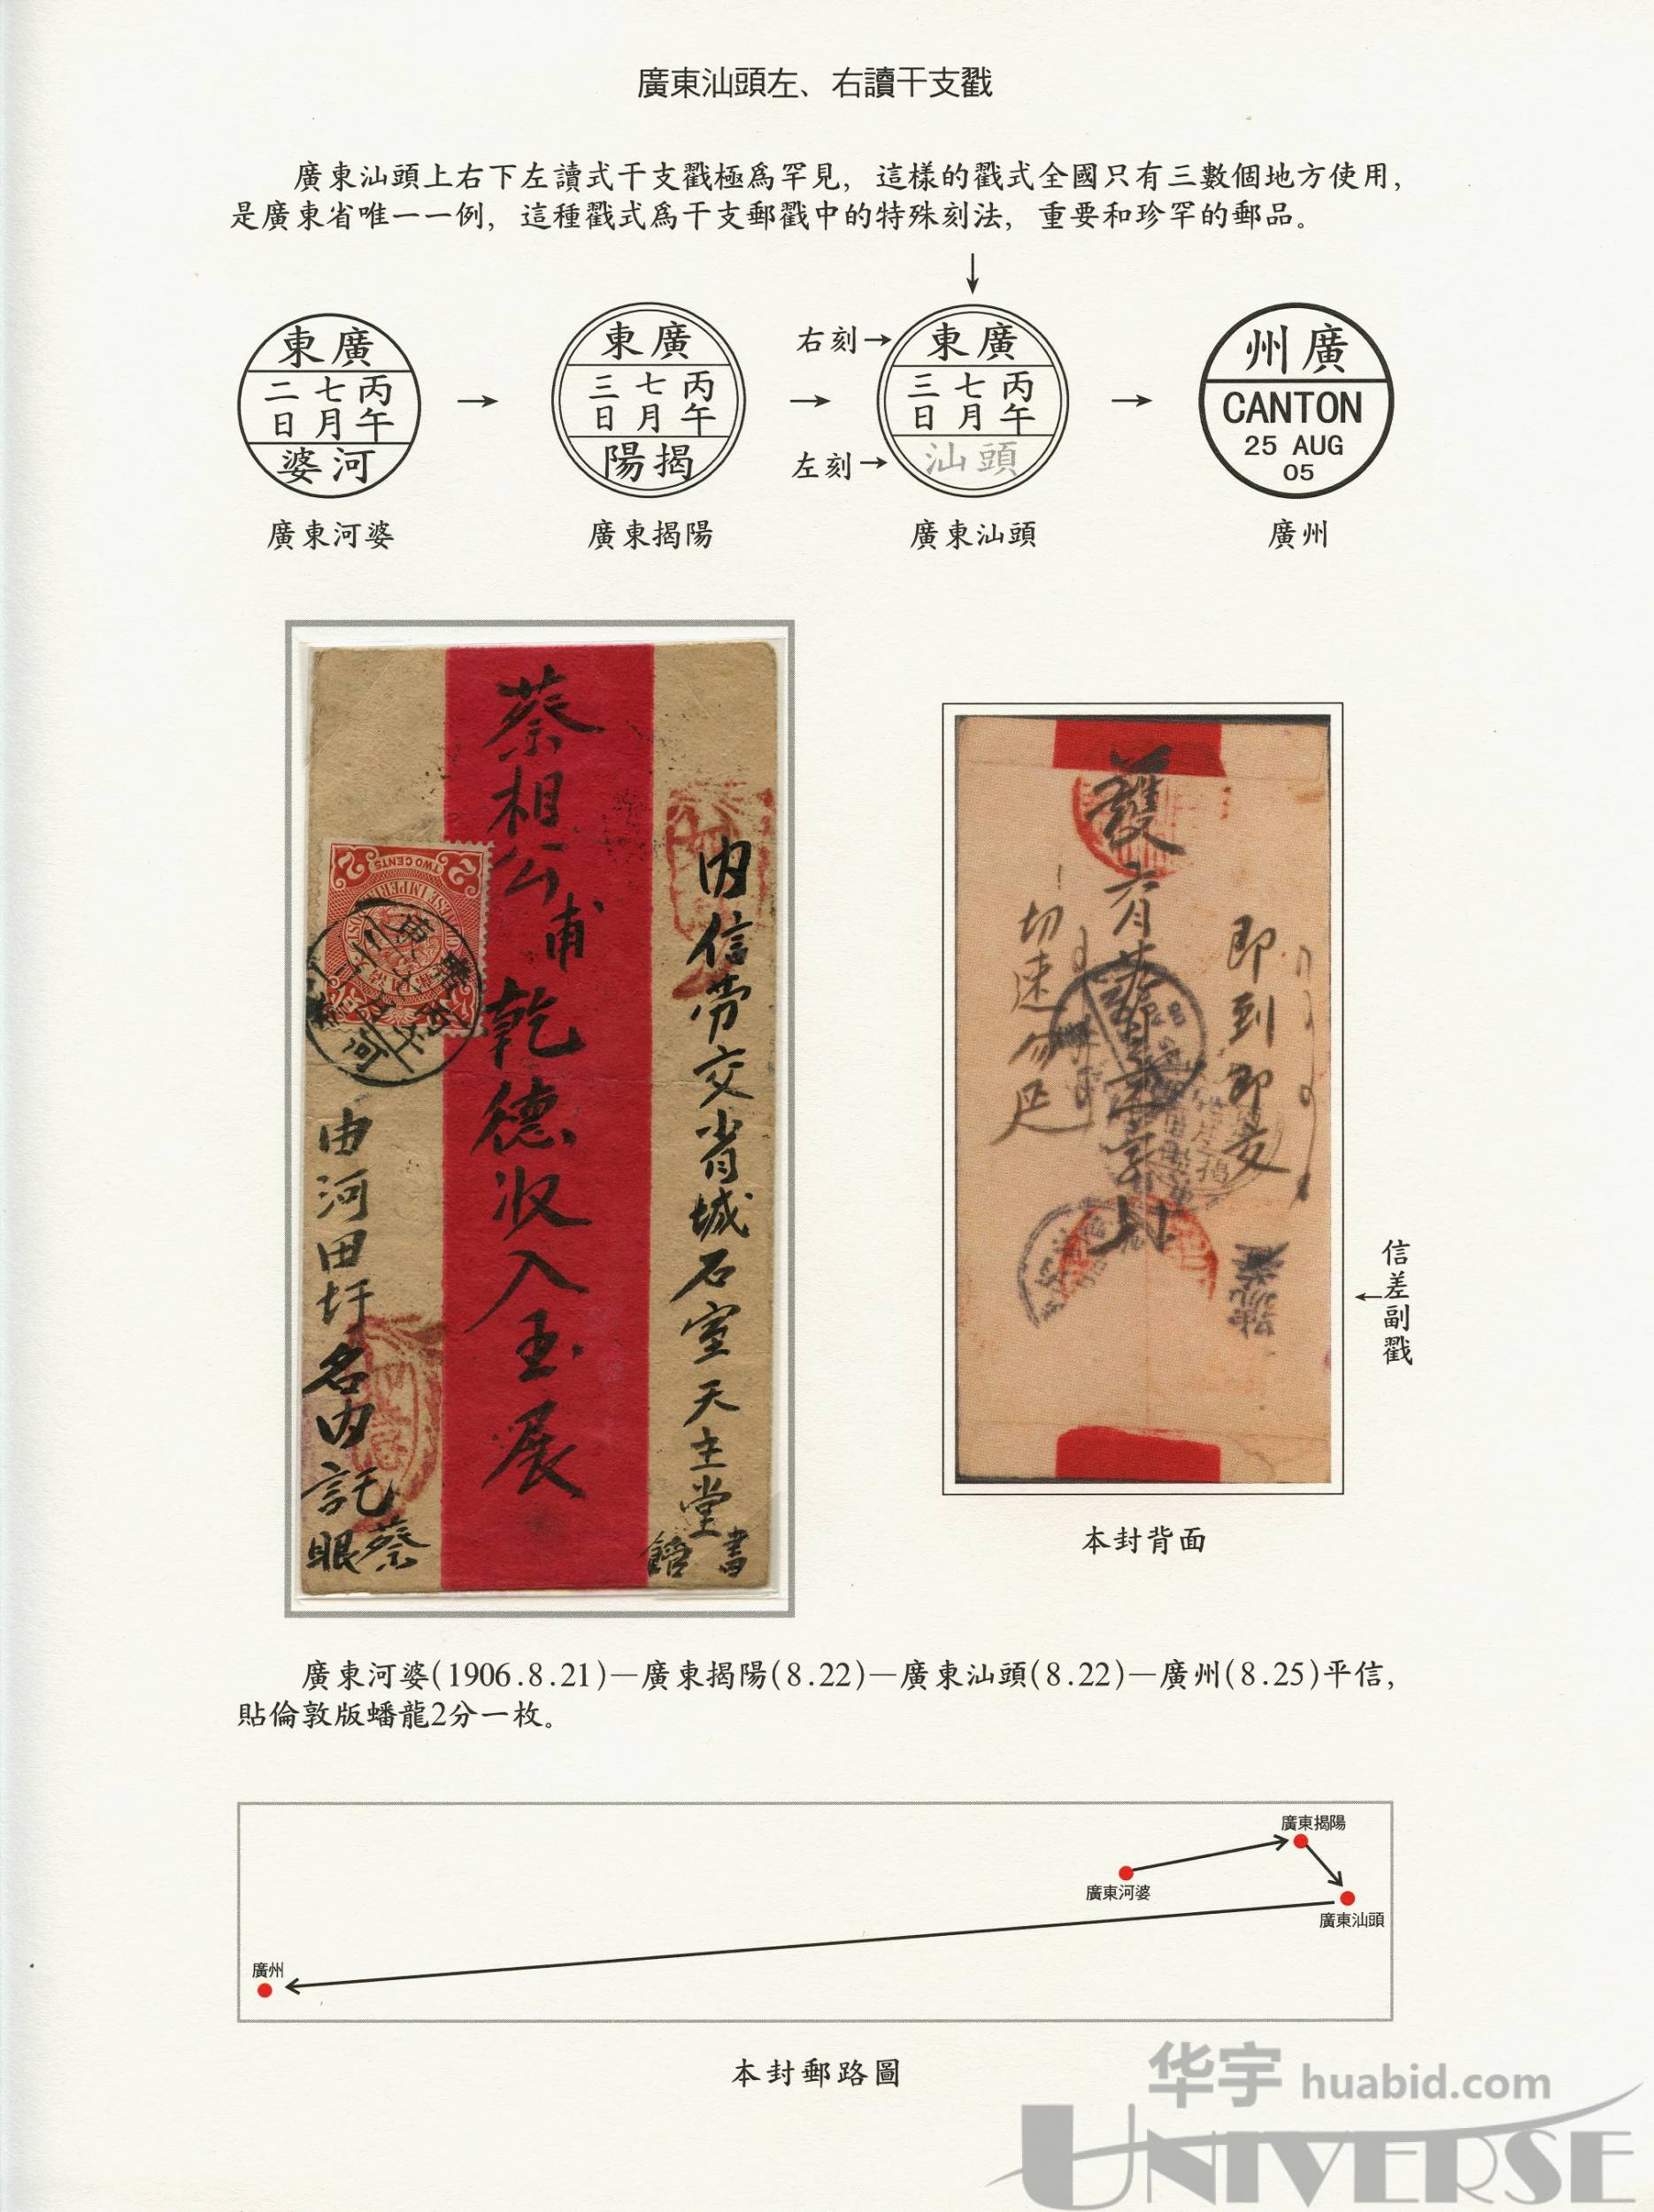 廣東汕頭左、右讀干支戳
廣東汕頭上右下左讀式干支戳極爲罕見，這樣的戳式全國只有三數個地方使用，
是廣東省唯一一例，這種戳式爲干支郵戳中的特殊刻法，重要和珍罕的郵品。
東廣
二七丙
日月午
婆河
廣東河婆
東廣
三七丙
日月午
陽揭
廣東揭陽
右刻
左刻
東廣
三七丙
日月午
汕頭
廣東汕頭
州廣
CANTON
25 AUG
05
廣州
內信勞交省城石室天主堂書館
蔡相公甫乾德收入玉展
由河田圩名內託蔡眼
TWO CENTS
2
2
即到即交
護
六月
切速勿延
信差副戳
本封背面
廣東河婆(1906.8.21)—廣東揭陽(8.22)—廣東汕頭(8.22)—廣州(8.25)平信，
貼倫敦版蟠龍2分一枚。
廣東揭陽
廣東河婆
廣東汕頭
廣州
本封郵路圖
华宇 huabid.com
UNIVERSE